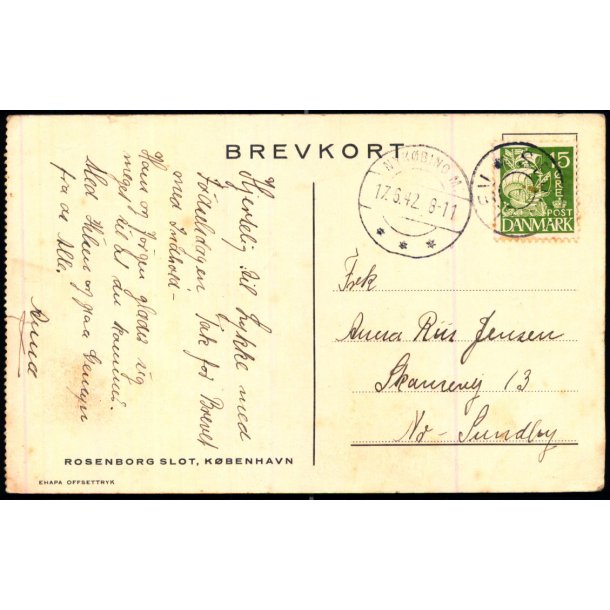 BREVKORT
Hjertelig til Lykke med
Fødselsdagen Tak for Brevet
med Indhold -
Hans og Jørgen glæder sig
meget til at du kommer.
Med Hilsen og paa Gensyn
fra os Alle.
Anna
NYKØBING M.
17.6.42. 8-11
15
ØRE
POST
DANMARK
Frk
Anna Riis Jensen
Skansevej 13
Nr- Sundby
ROSENBORG SLOT, KØBENHAVN
EHAPA OFFSETTRYK